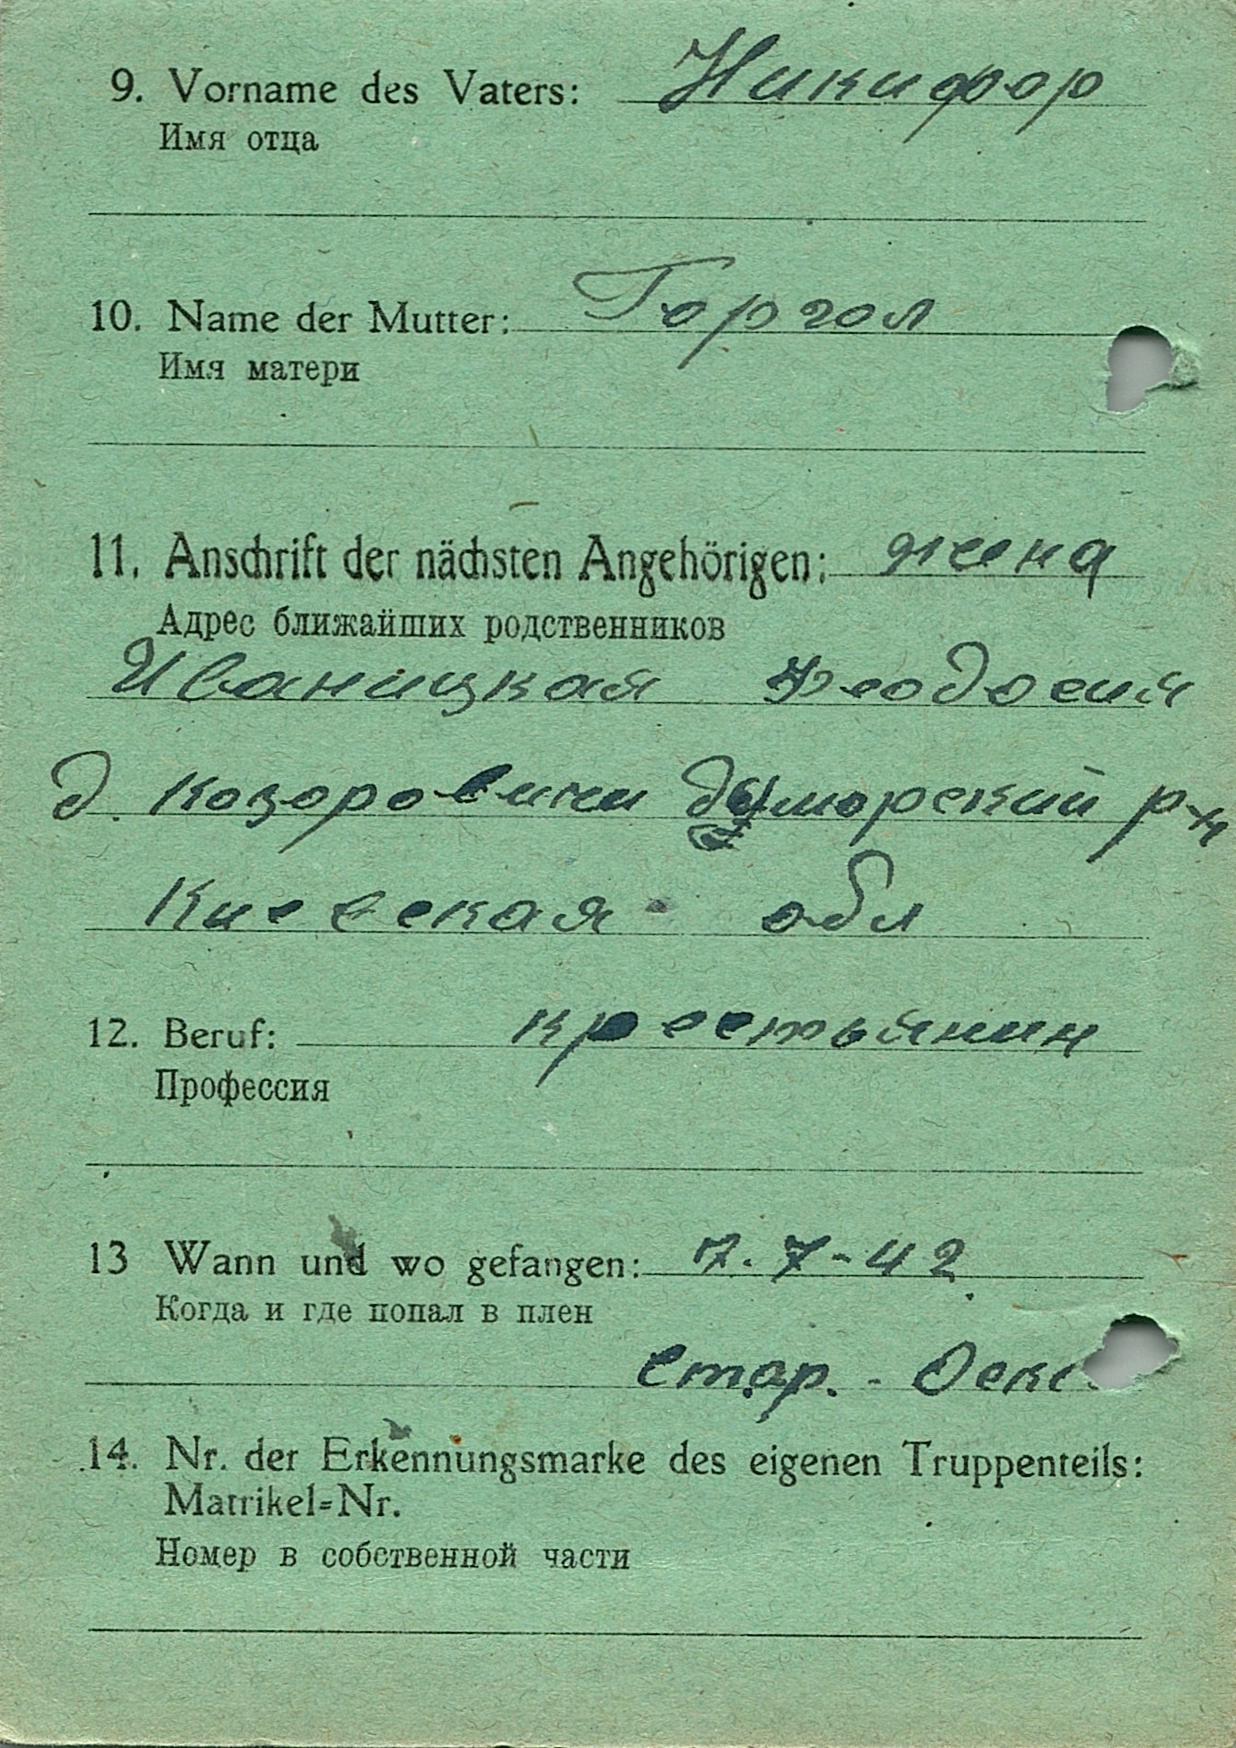 9. Vorname des Vaters: Никифор
Имя отца
10. Name der Mutter: Горгол
Имя матери
11. Anschrift der nächsten Angehörigen: жена
Адрес ближайших родственников
Иваницкая Феодосия
д. Козоровичи дыморский р-н
Киевская обл
12. Beruf: крестьянин
Профессия
13 Wann und wo gefangen: 7.7-42
Когда и где попал в плен
Стар. - Оск
14. Nr. der Erkennungsmarke des eigenen Truppenteils:
Matrikel=Nr.
Номер в собственной части